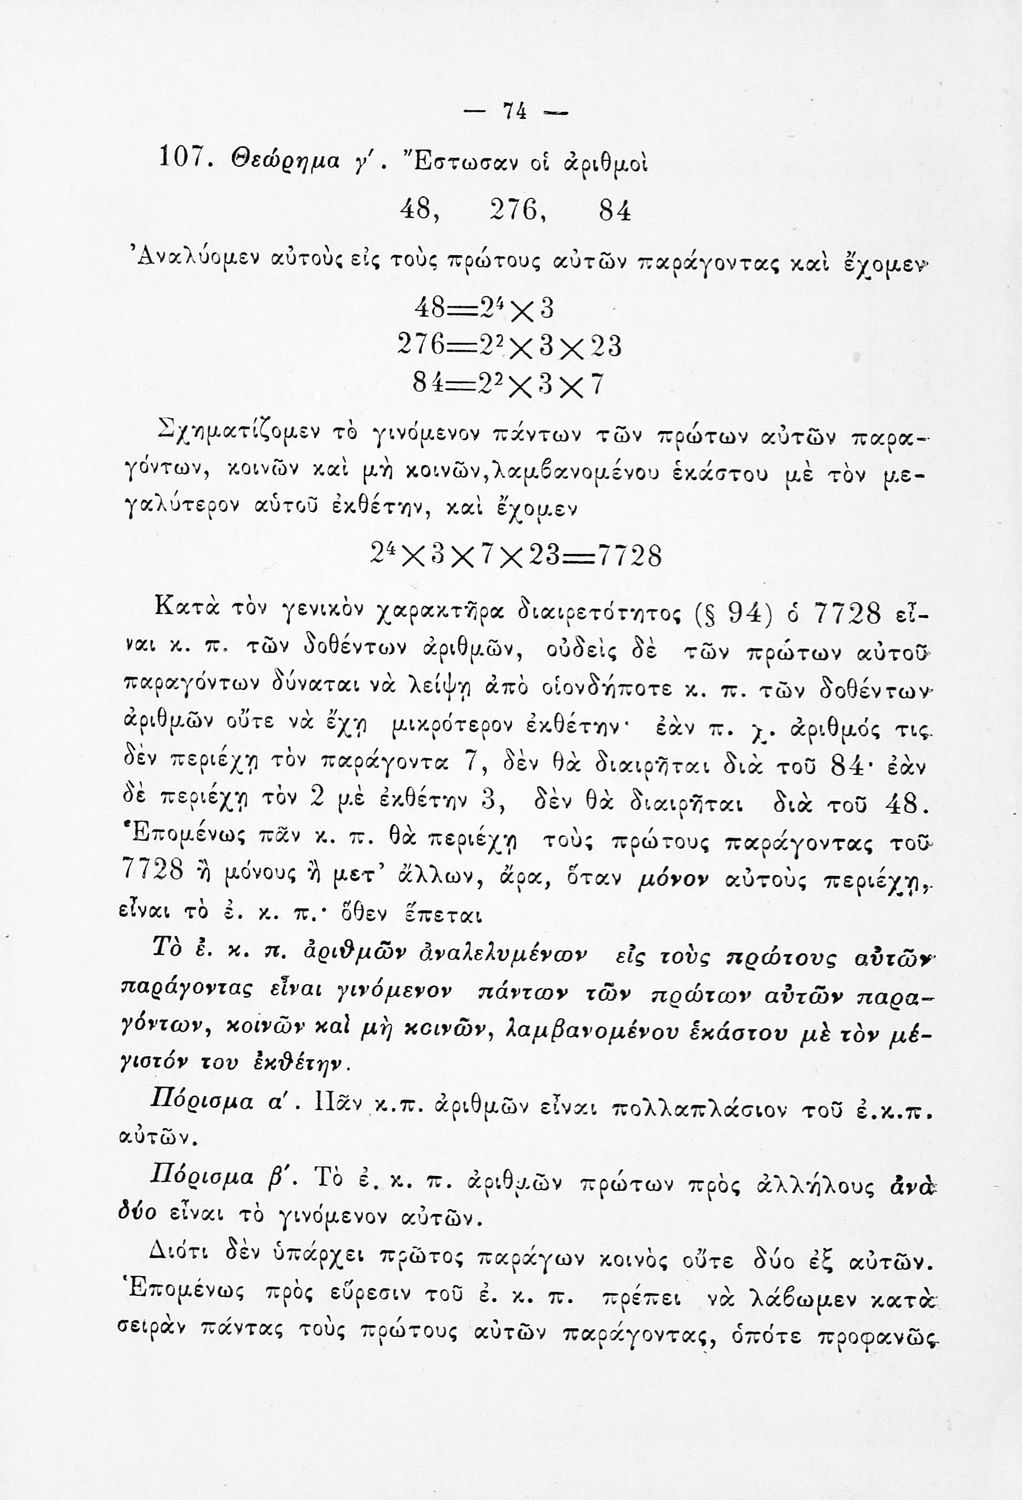 — 74 —
107. Θεώρημα γ′. Ἔστωσαν οἱ ἀριθμοὶ
48, 276, 84
Ἀναλύομεν αὐτοὺς εἰς τοὺς πρώτους αὐτῶν παράγοντας καὶ ἔχομεν
48=2⁴×3
276=2²×3×23
84=2²×3×7
Σχηματίζομεν τὸ γινόμενον πάντων τῶν πρώτων αὐτῶν παρα-
γόντων, κοινῶν καὶ μὴ κοινῶν, λαμβανομένου ἑκάστου μὲ τὸν με-
γαλύτερον αὑτοῦ ἐκθέτην, καὶ ἔχομεν
2⁴×3×7×23=7728
Κατὰ τὸν γενικὸν χαρακτῆρα διαιρετότητος (§ 94) ὁ 7728 εἶ-
ναι κ. π. τῶν δοθέντων ἀριθμῶν, οὐδεὶς δὲ τῶν πρώτων αὐτοῦ
παραγόντων δύναται νὰ λείψῃ ἀπὸ οἱονδήποτε κ. π. τῶν δοθέντων
ἀριθμῶν οὔτε νὰ ἔχῃ μικρότερον ἐκθέτην· ἐὰν π. χ. ἀριθμός τις
δὲν περιέχῃ τὸν παράγοντα 7, δὲν θὰ διαιρῆται διὰ τοῦ 84· ἐὰν
δὲ περιέχῃ τὸν 2 μὲ ἐκθέτην 3, δὲν θὰ διαιρῆται διὰ τοῦ 48.
Ἑπομένως πᾶν κ. π. θὰ περιέχῃ τοὺς πρώτους παράγοντας τοῦ
7728 ἢ μόνους ἢ μετ’ ἄλλων, ἄρα, ὅταν μόνον αὐτοὺς περιέχῃ,
εἶναι τὸ ἐ. κ. π.· ὅθεν ἕπεται
Τὸ ἐ. κ. π. ἀριθμῶν ἀναλελυμένων εἰς τοὺς πρώτους αὐτῶν
παράγοντας εἶναι γινόμενον πάντων τῶν πρώτων αὐτῶν παρα-
γόντων, κοινῶν καὶ μὴ κοινῶν, λαμβανομένου ἑκάστου μὲ τὸν μέ-
γιστόν του ἐκθέτην.
Πόρισμα α′. Πᾶν κ.π. ἀριθμῶν εἶναι πολλαπλάσιον τοῦ ἐ.κ.π.
αὐτῶν.
Πόρισμα β′. Τὸ ἐ. κ. π. ἀριθμῶν πρώτων πρὸς ἀλλήλους ἀνὰ
δύο εἶναι τὸ γινόμενον αὐτῶν.
Διότι δὲν ὑπάρχει πρῶτος παράγων κοινὸς οὔτε δύο ἐξ αὐτῶν.
Ἑπομένως πρὸς εὕρεσιν τοῦ ἐ. κ. π. πρέπει νὰ λάβωμεν κατὰ
σειρὰν πάντας τοὺς πρώτους αὐτῶν παράγοντας, ὁπότε προφανῶς